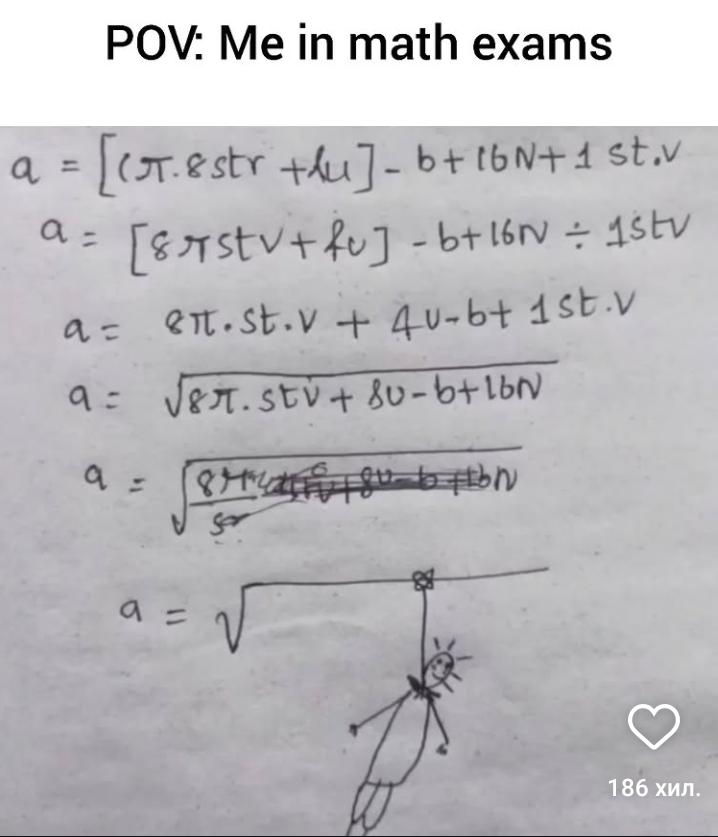 POV: Me in math exams
a = [(π.8str + fu] - b + 16N + 1 st.v
a = [8πstv + fu] - b + 16N ÷ 1stv
a = 8π.st.v + 4u - b + 1st.v
a = √8π.stv + 8u - b + 16N
a = √8π
a = √
186 хил.